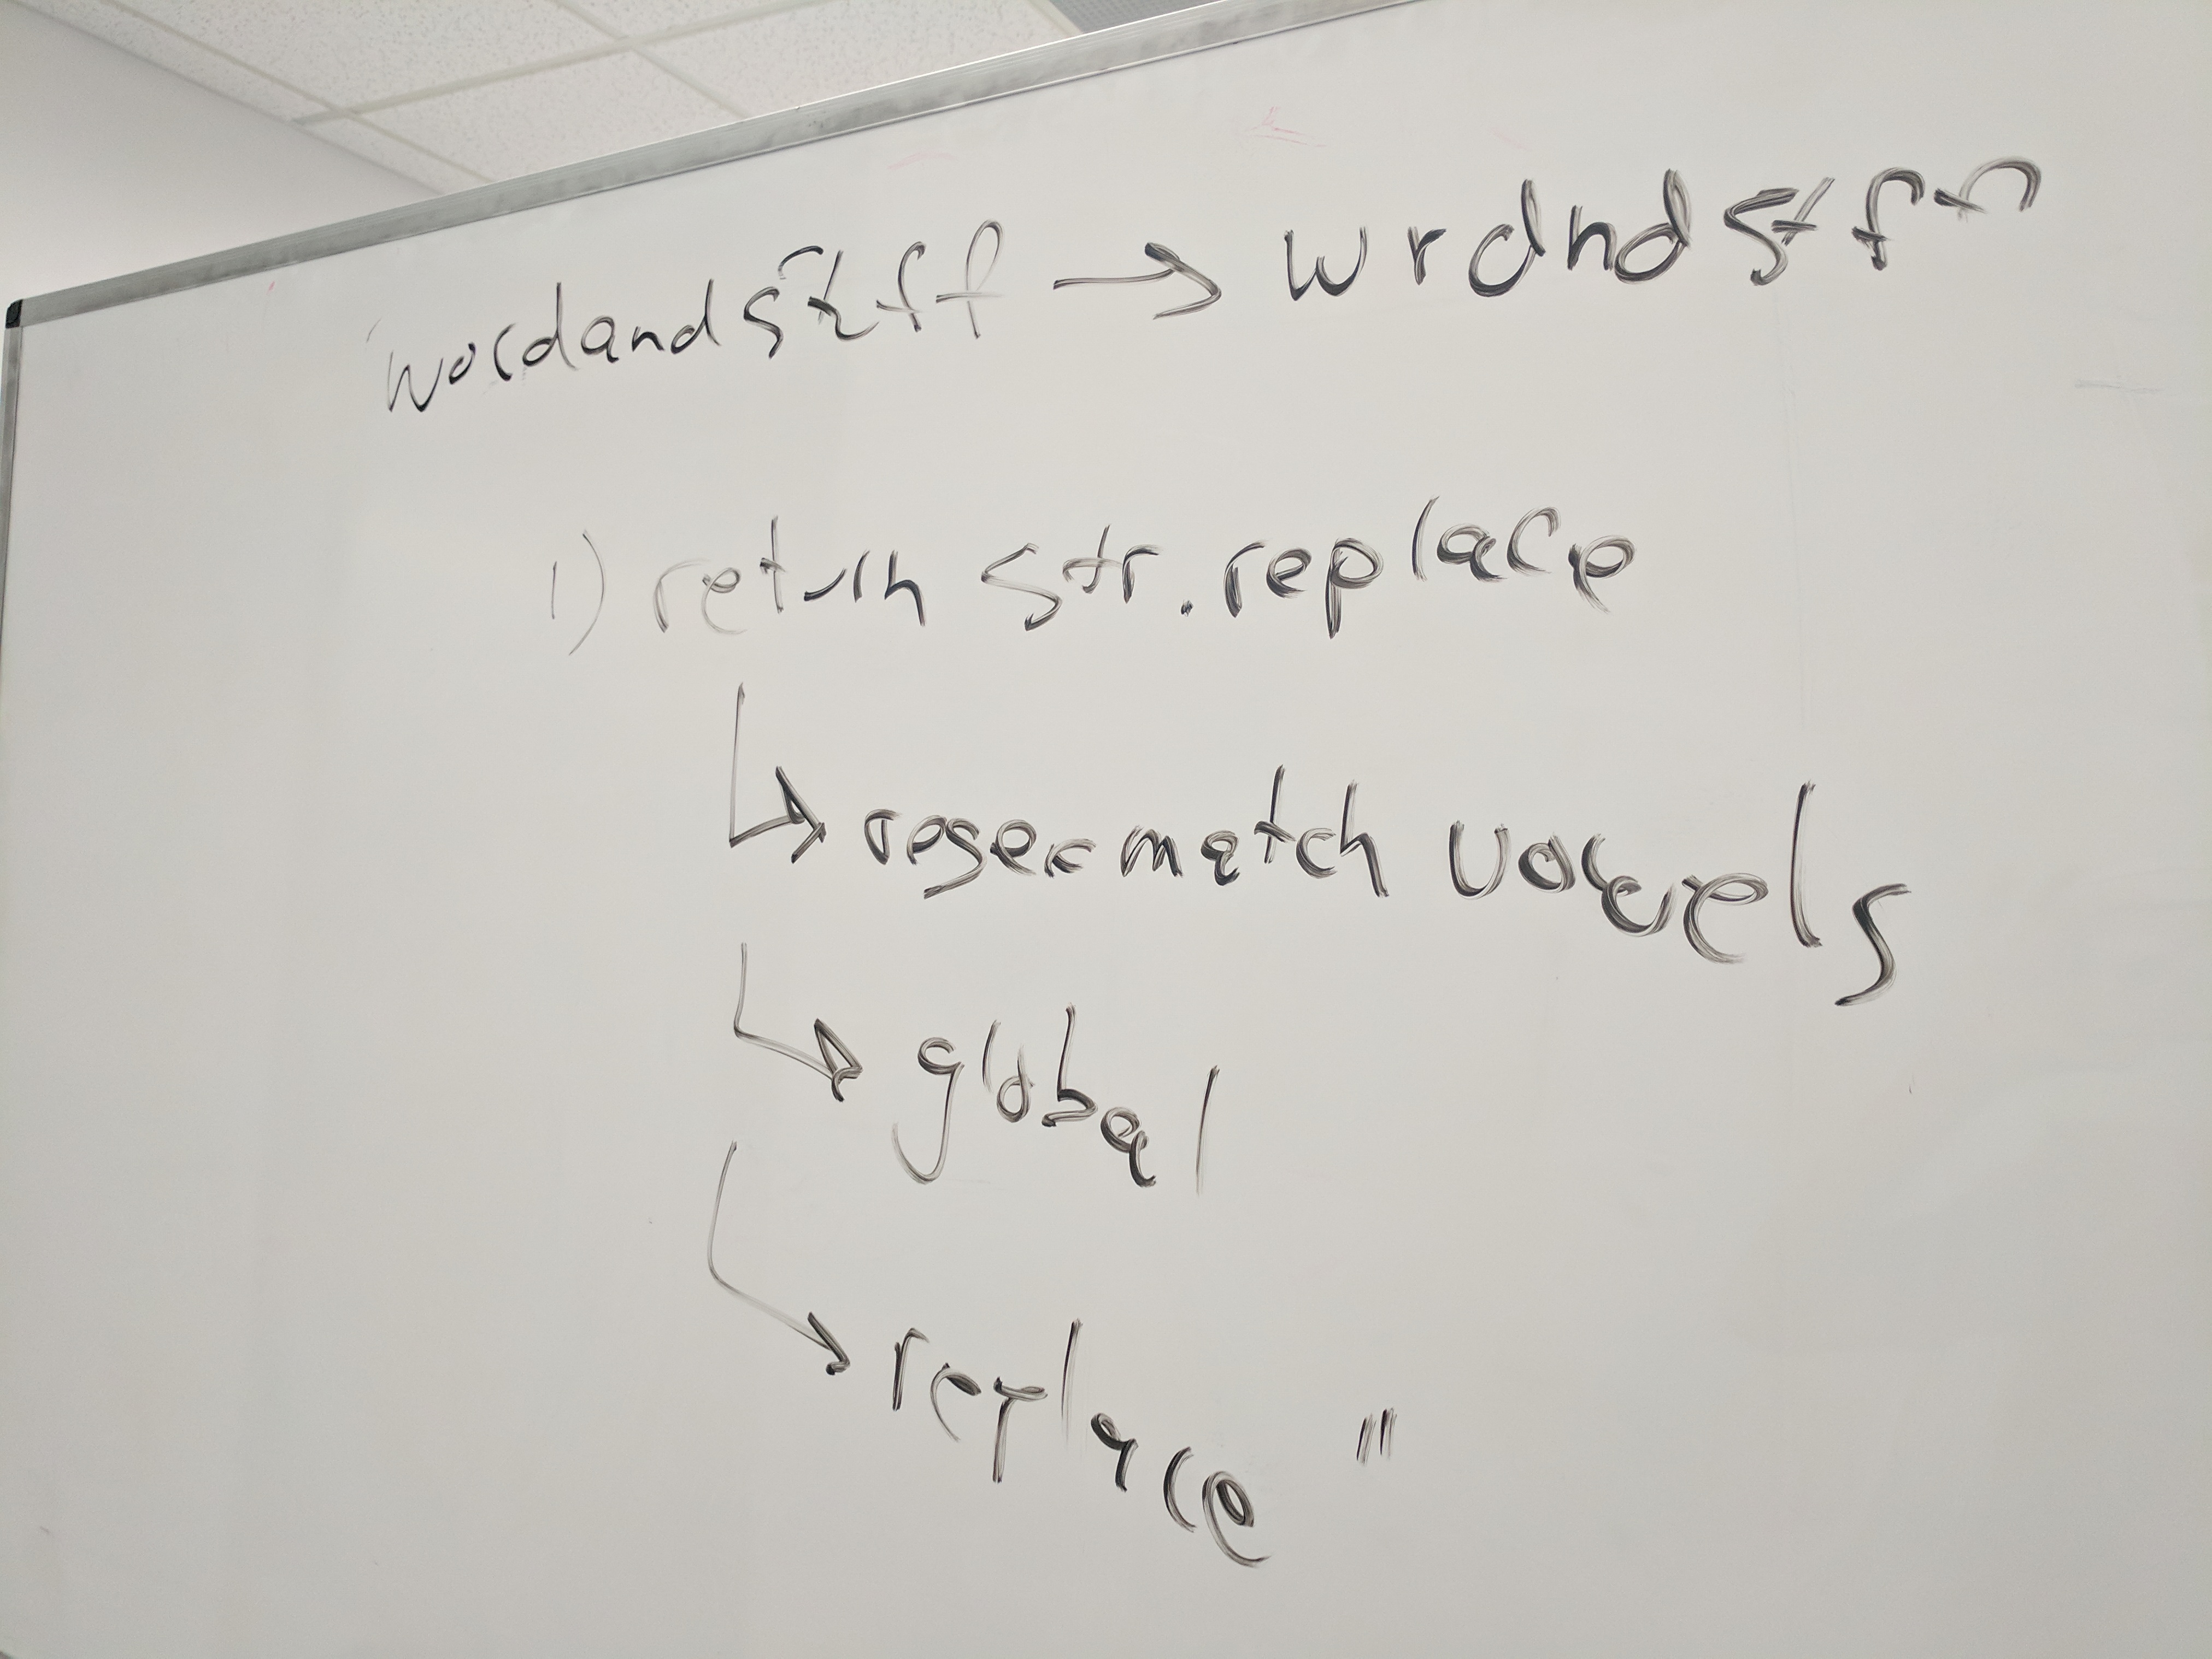 wordandstuff → wrdndstff
1) return str.replace
↳ regex match vowels
↳ global
↳ replace ''